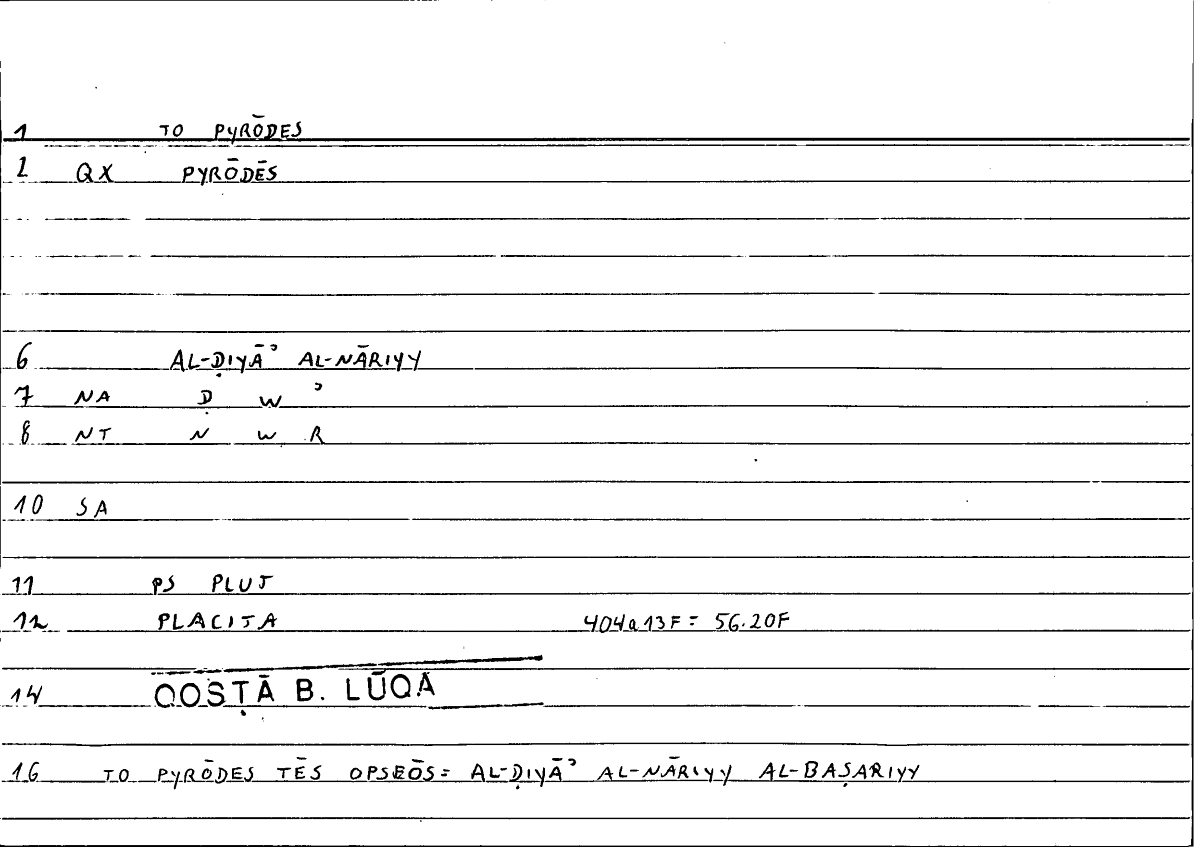 1 TO PYRŌDES
2 QX PYRŌDĒS
6 AL-ḌIYĀʾ AL-NĀRIYY
7 NA Ḍ W ʾ
8 NT N W R
10 SA
11 PS PLUT
12 PLACITA 404a13F = 56.20F
14 QOSṬĀ B. LŪQA
16 TO PYRŌDES TĒS OPSEŌS = AL-ḌIYĀʾ AL-NĀRIYY AL-BAṢARIYY